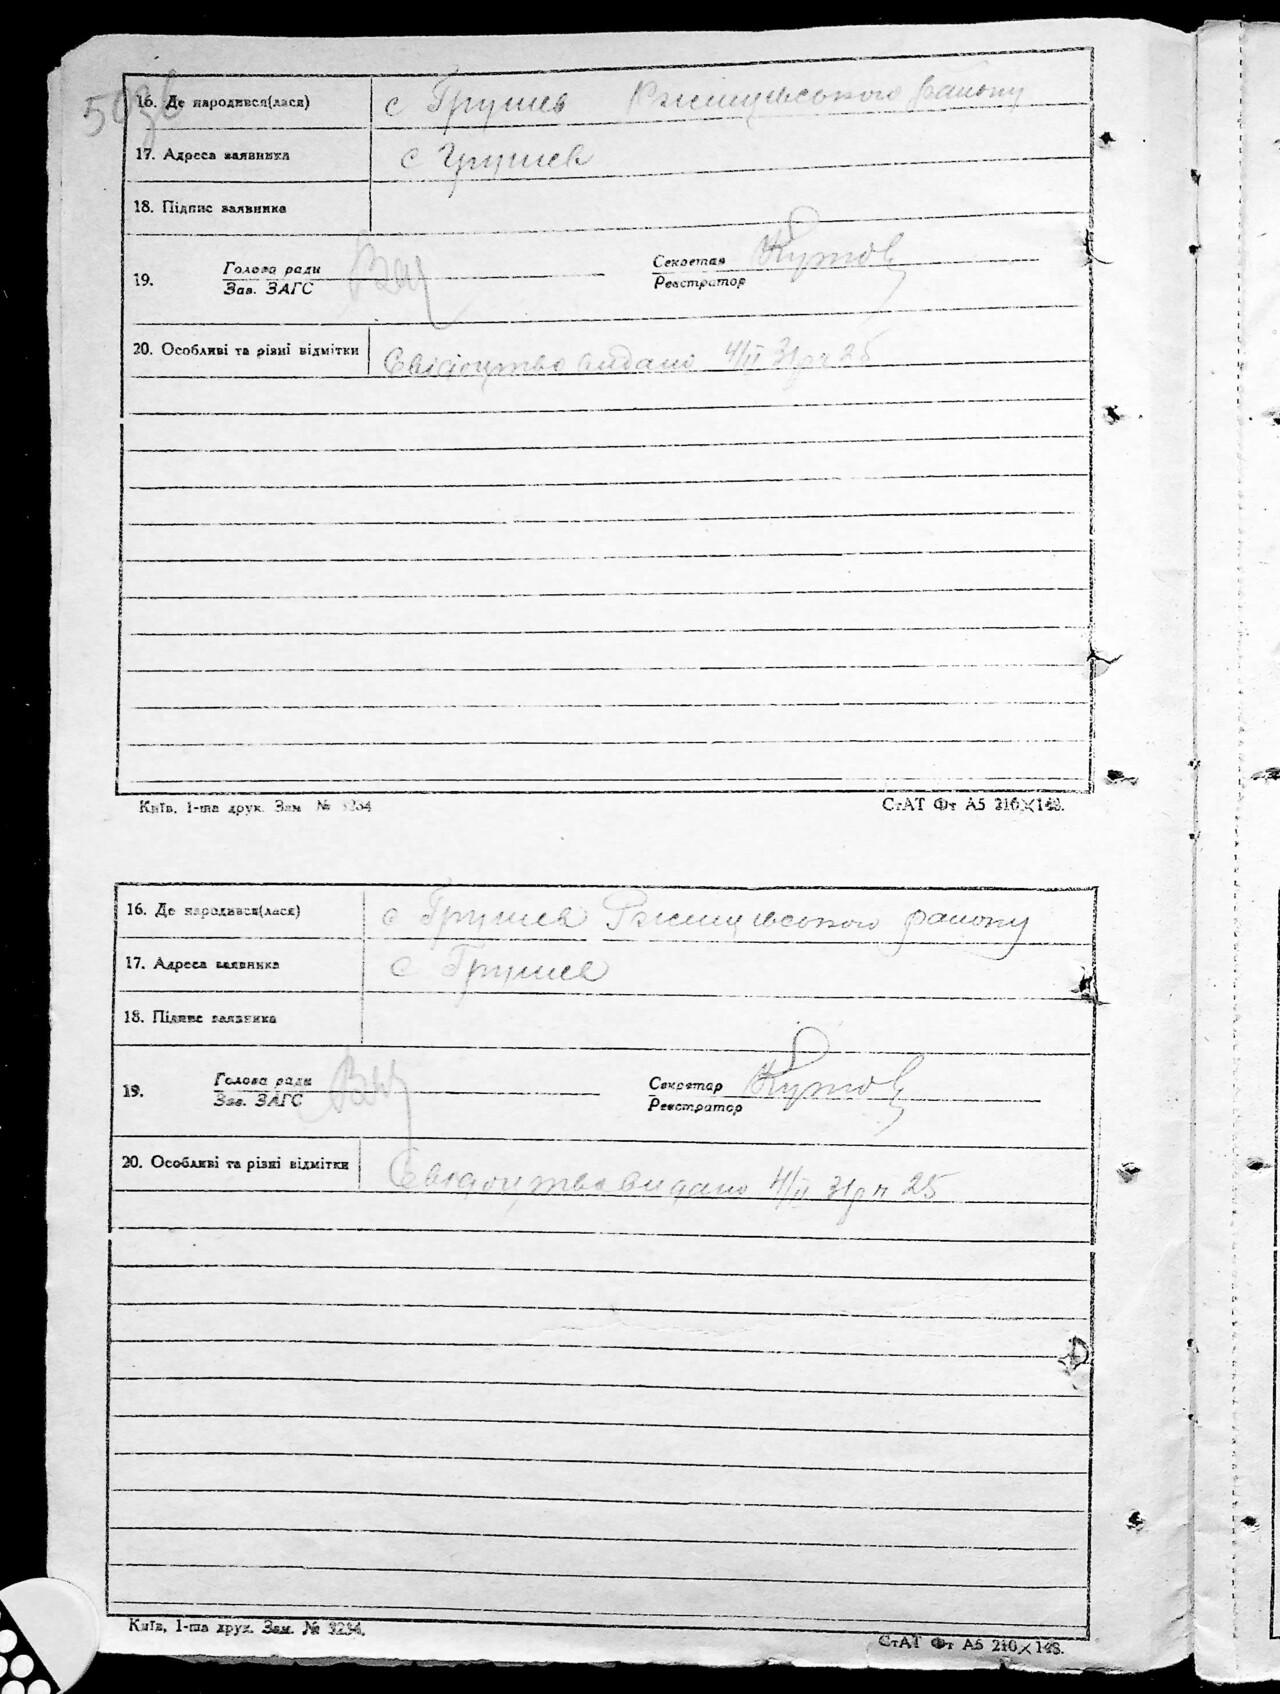 50зв
16. Де народився(лася) с Грушев Ржищевського району
17. Адреса заявника с Грушев
18. Підпис заявника
19. Голова ради Секретар
Зав. ЗАГС Реєстратор
20. Особливі та різні відмітки Свідоцтво видано 4/II 31р № 25
Київ, 1-ша друк. Зам. № 3234 СтАТ Фт А5 210×148.
16. Де народився(лася) с Грушев Ржищевського району
17. Адреса заявника с Грушев
18. Підпис заявника
19. Голова ради Секретар
Зав. ЗАГС Реєстратор
20. Особливі та різні відмітки Свідоцтво видано 4/II 31р № 25
Київ, 1-ша друк. Зам. № 3234. СтАТ Фт А5 210×148.